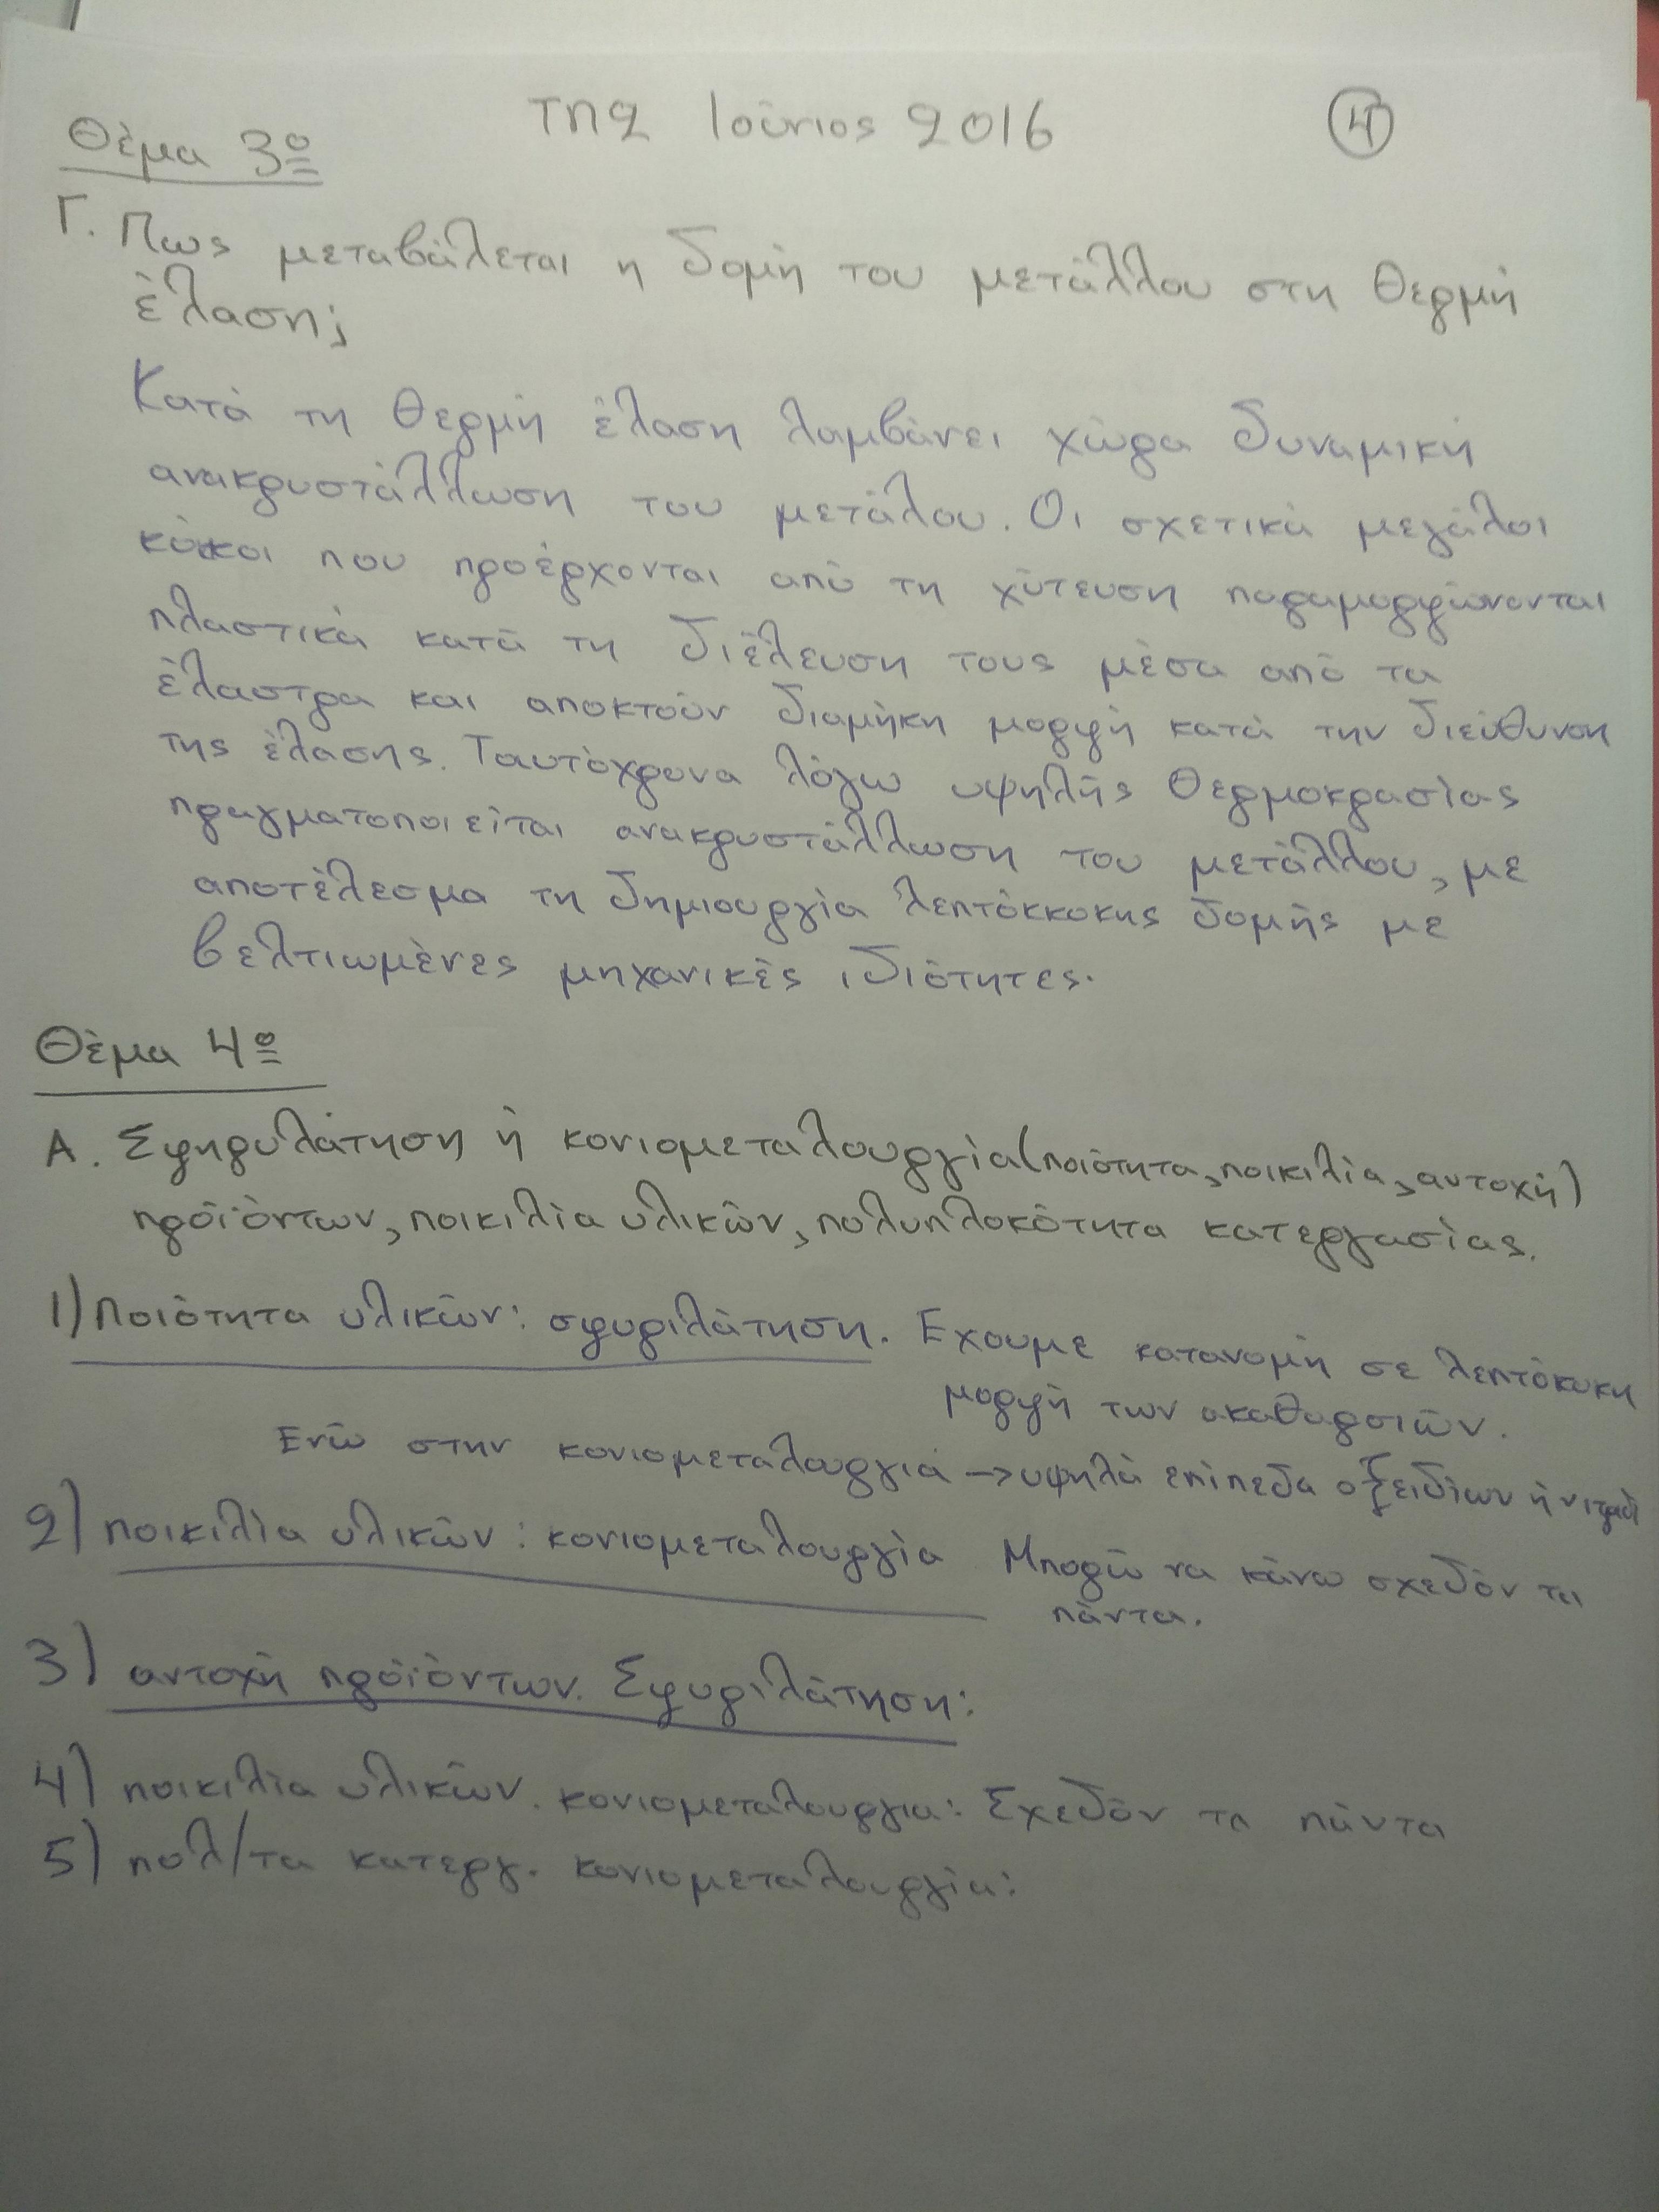 ΤΠ2 Ιούνιος 2016 4
Θέμα 3ο
Γ. Πως μεταβάλεται η δομή του μετάλλου στη θερμή
έλαση;
Κατά τη θερμή έλαση λαμβάνει χώρα δυναμική
ανακρυστάλλωση του μετάλου. Οι σχετικά μεγάλοι
κόκκοι που προέρχονται από τη χύτευση παραμορφώνονται
πλαστικά κατά τη διέλευση τους μέσα από τα
έλαστρα και αποκτούν διαμήκη μορφή κατά την διεύθυνση
της έλασης. Ταυτόχρονα λόγω υψηλής θερμοκρασίας
πραγματοποιείται ανακρυστάλλωση του μετάλλου, με
αποτέλεσμα τη δημιουργία λεπτόκκοκης δομής με
βελτιωμένες μηχανικές ιδιότητες.
Θέμα 4ο
Α. Σφηρυλάτηση ή κονιομεταλουργία (ποιότητα, ποικιλία, αντοχή)
προϊόντων, ποικιλία υλικών, πολυπλοκότητα κατεργασίας.
1) Ποιότητα υλικών: σφυριλάτηση. Έχουμε κατανομή σε λεπτόκοκη
μορφή των ακαθαρσιών.
Ενώ στην κονιομεταλουργια → υψηλά επίπεδα οξειδίων ή
2) ποικιλία υλικών: κονιομεταλουργία Μπορώ να κάνω σχεδόν τα
πάντα.
3) αντοχή προϊόντων. Σφυριλάτηση:
4) ποικιλία υλικών. κονιομεταλουργια: Σχεδόν τα πάντα
5) πολ/τα κατεργ. κονιομεταλουργία: